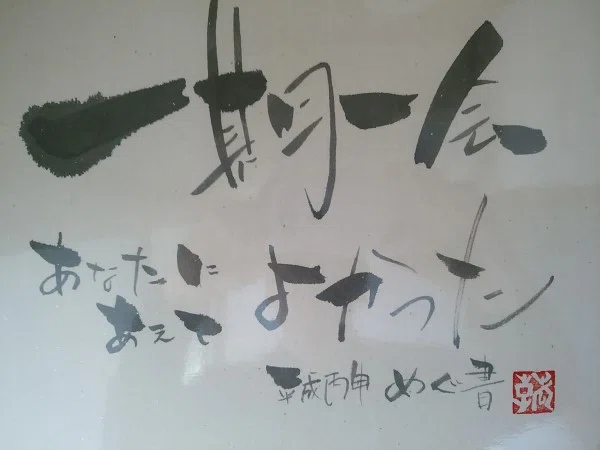 一期一会
あなたに
あえて よかった
平成丙申 めぐ書